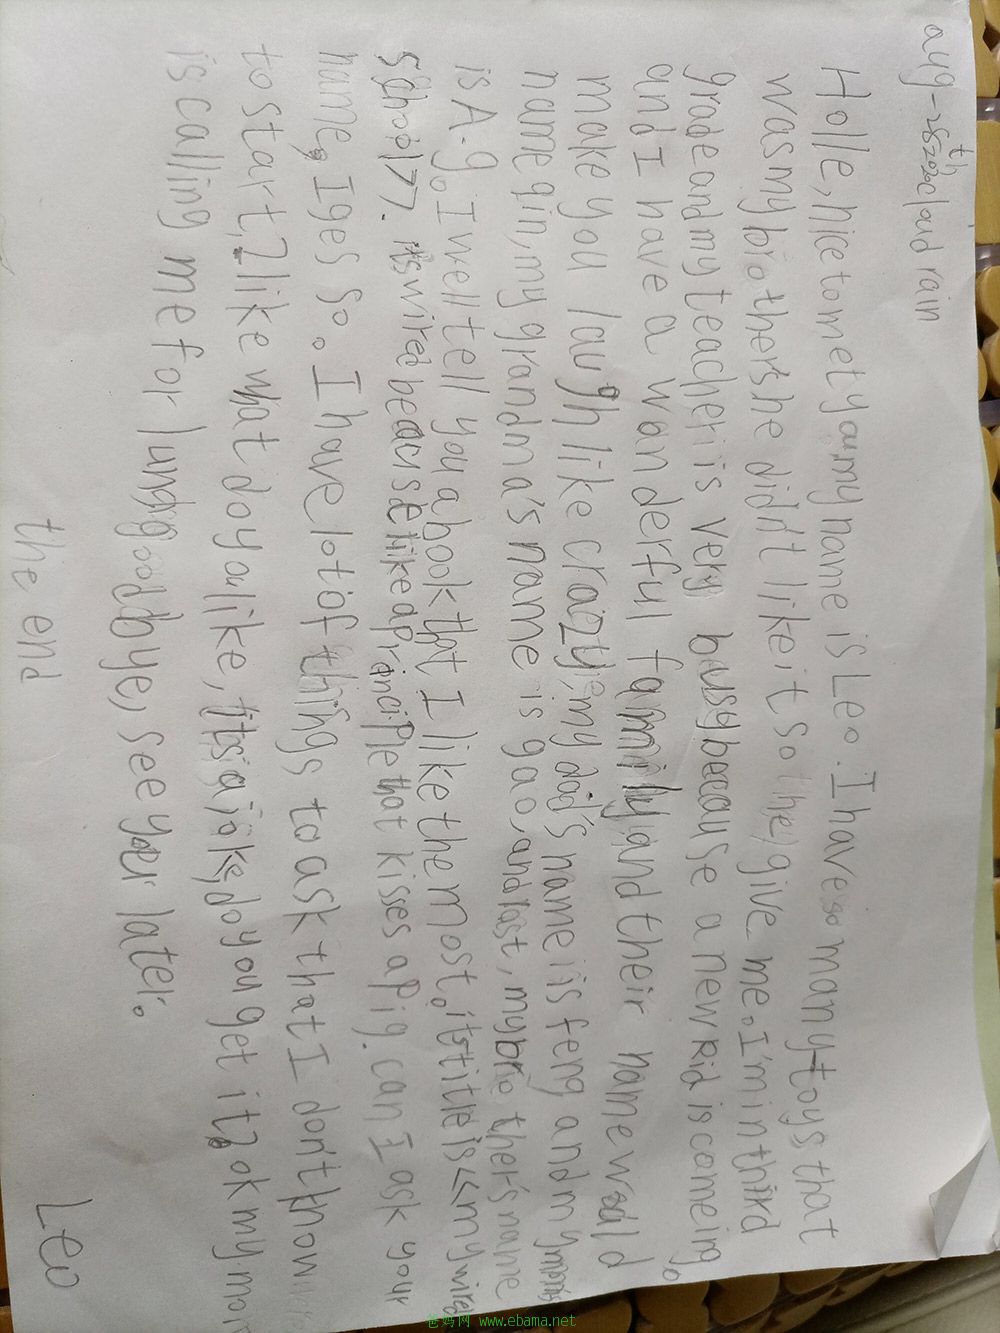 aug-28th 2020 cloud rain
Holle, nice to mety ou my name is Leo. I have so many toys that
was my brother's he didn't like it so he give me. I'm in third
grade and my teacher is very busy because a new kid is comeing.
and I have a wanderful family and their name would
make you laugh like crazy, my dad's name is feng and my mom's
name qin, my grandma's name is gao, and last, my brother's name
is A.g. I well tell you a book that I like the most. it's title is <<my wired
school>>. it's wired because like a principle that kisses a pig. can I ask your
name, I ges so. I have lot of things to ask that I don't know
to start, I like what do you like, it's a joke, do you get it? ok my mom
is calling me for lunch good bye, see your later.
the end
Leo
爸妈网 www.ebama.net